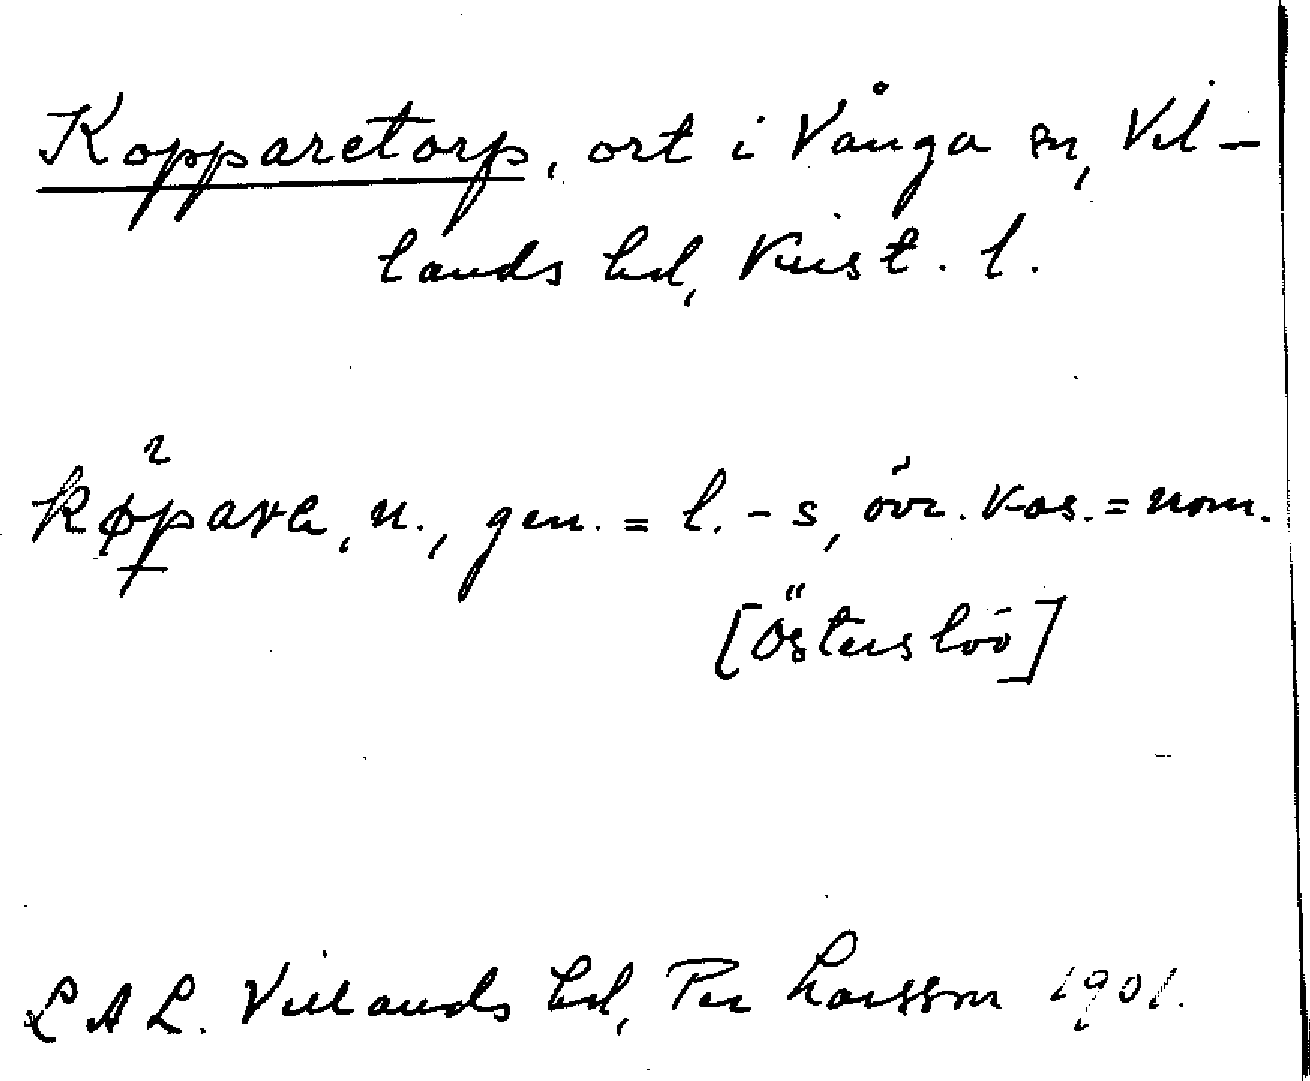 Kopparetorp, ort i Vånga sn, Vil-
lands hd, Krist. l.
kø²para, n., gen. = l. - s, övr. kas. = nom.
[Österslöv]
LAL. Villands hd, Per Larsson 1901.